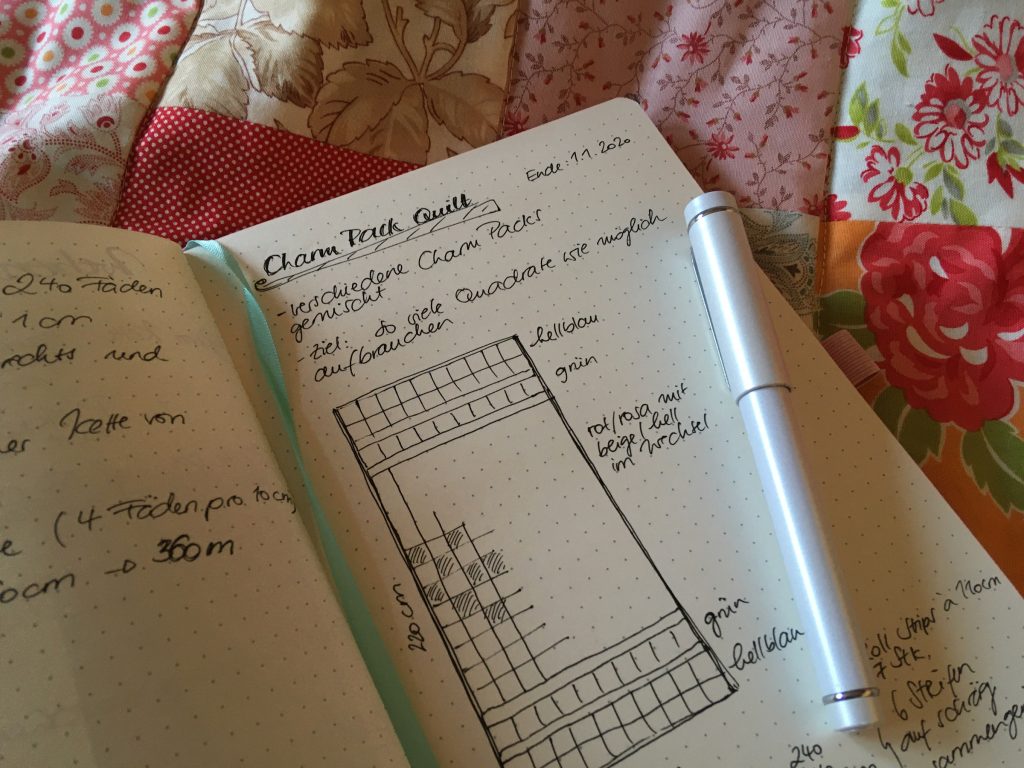 240 Fäden
1 cm
rechts und
Kette von
(4 Fäden pro 10cm)
cm → 360m
Ende: 1.1.2020
Charm Pack Quilt
- verschiedene Charm Packs
gemischt
- Ziel: so viele Quadrate wie möglich
aufbrauchen
hellblau
grün
rot/rosa mit
beige/hell
im Wechsel
220 cm
grün
hellblau
Strips a 110cm
7 Stk.
6 Streifen
auf schräg
240